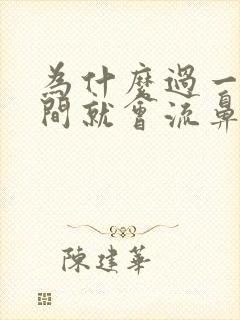 為什麼過一
間就會流鼻
陳建華